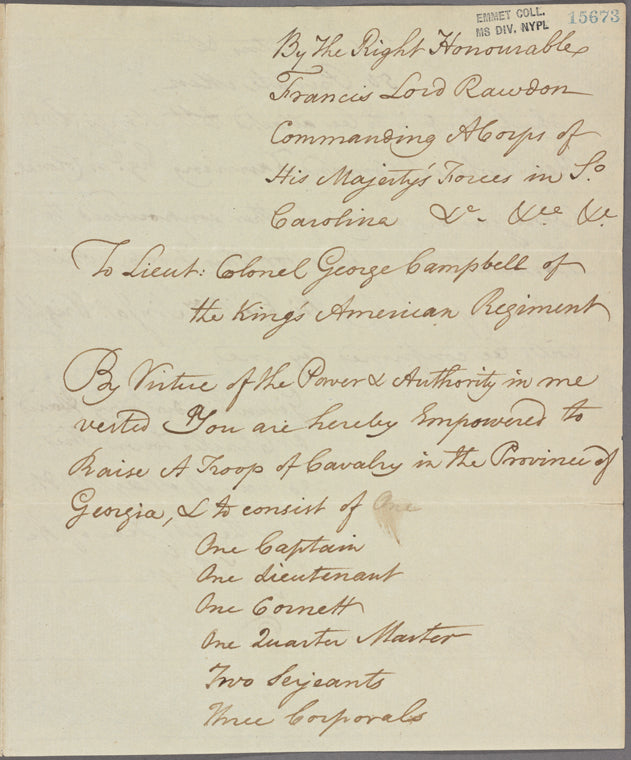 EMMET COLL.
MS DIV. NYPL
15673
By The Right Honourable
Francis Lord Rawdon
Commanding A Corps of
His Majesty's Forces in So.
Carolina &c. &ce &c.
To Lieut: Colonel George Campbell of
the King's American Regiment
By Virtue of the Power & Authority in me
vested You are hereby Empowered to
Raise A Troop of Cavalry in the Province of
Georgia, & to consist of One
One Captain
One Lieutenant
One Cornett
One Quarter Master
Two Serjeants
Three Corporals